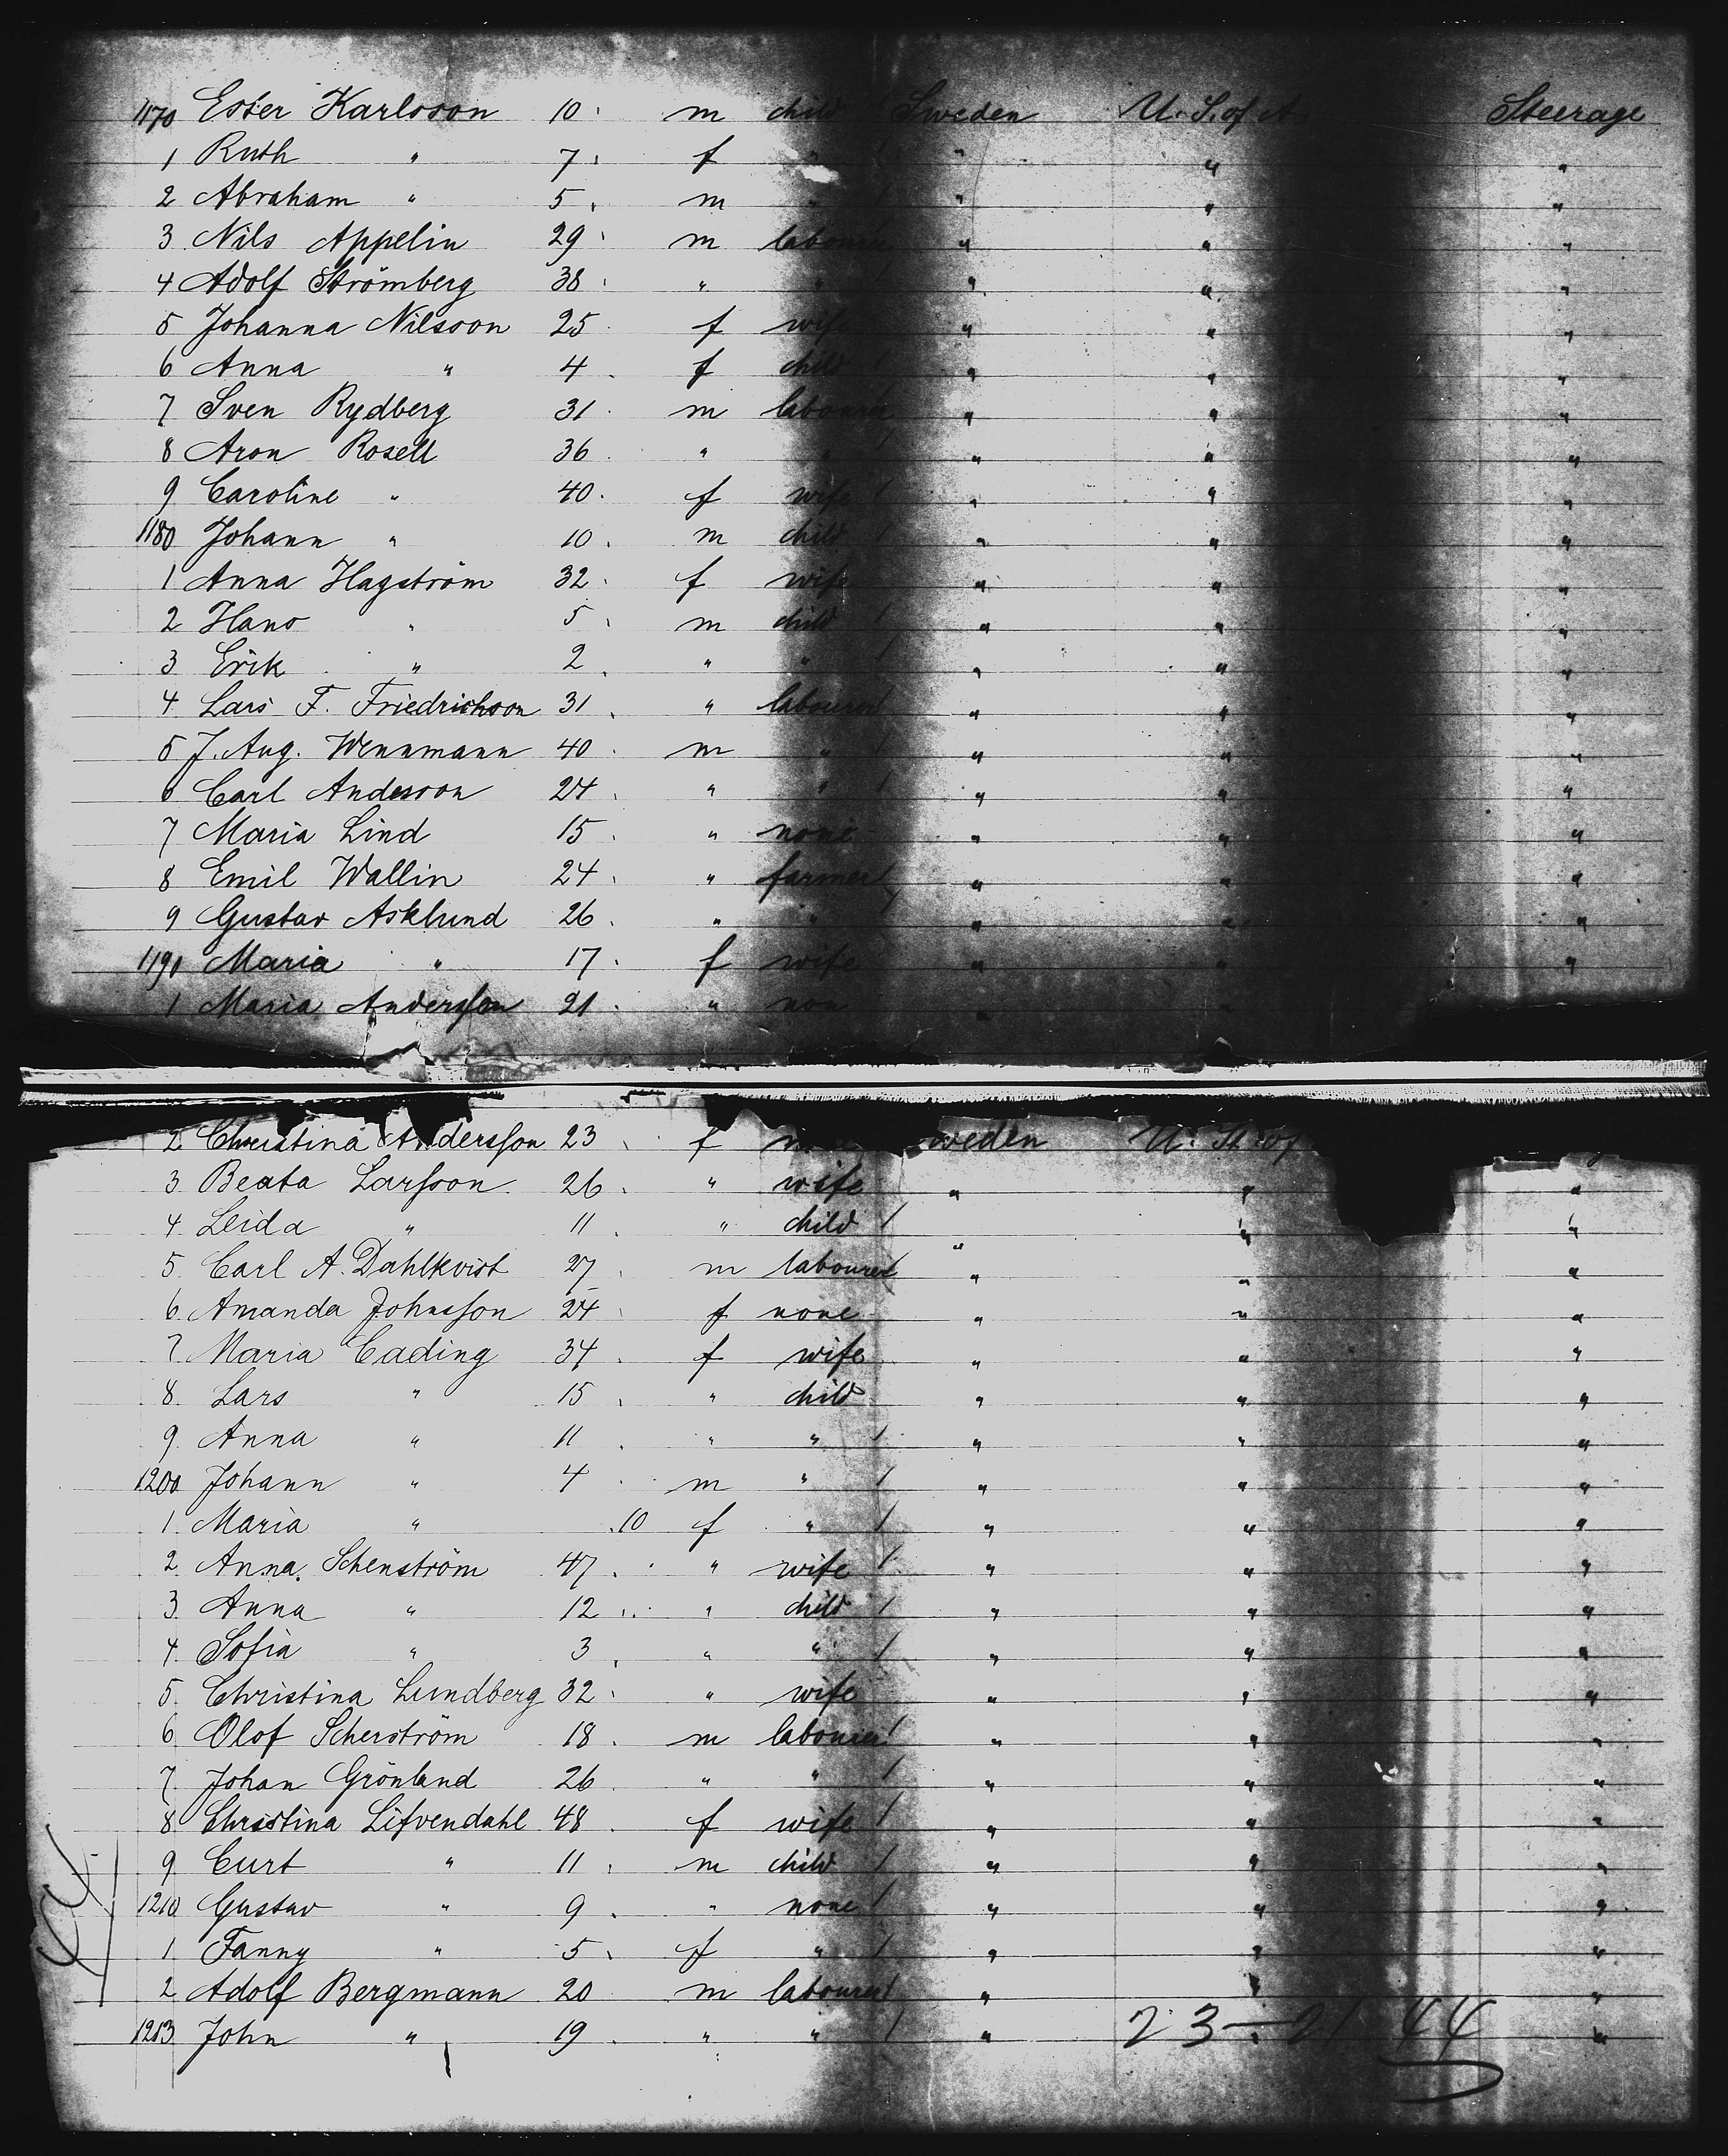 1170 Ester Karlsson 10 m child Sweden U. S. of A. Steerage
1 Ruth " 7 f " " " "
2 Abraham " 5 m " " " "
3 Nils Appelin 29 m labourer " " "
4 Adolf Strömberg 38 " " " " "
5 Johanna Nilsson 25 f wife " " "
6 Anna " 4 f child " " "
7 Sven Rydberg 31 m labourer " " "
8 Aron Rosell 36 " " " " "
9 Caroline " 40 f wife " " "
1180 Johann " 10 m child " " "
1 Anna Hagström 32 f wife " " "
2 Hans " 5 m child " " "
3 Erik " 2 " " " " "
4 Lars F. Friedrichson 31 " labourer " " "
5 J. Aug. Wennmann 40 m " " " "
6 Carl Andersson 24 " " " " "
7 Maria Lind 15 " none " " "
8 Emil Wallin 24 " farmer " " "
9 Gustav Asklund 26 " " " " "
1190 Maria " 17 f wife " " "
1 Maria Andersson 21 " none " "
2 Christina Andersson 23 f Sweden U. St. of
3 Beata Larsson 26 " wife " " "
4 Leida " 11 " child " " "
5 Carl A. Dahlkvist 27 m labourer " " "
6 Amanda Johnsson 24 f none " " "
7 Maria Cading 34 f wife " " "
8 Lars " 15 " child " " "
9 Anna " 11 " " " " "
1200 Johann " 4 m " " " "
1 Maria " 10 f " " " "
2 Anna Schenström 47 " wife " " "
3 Anna " 12 " child " " "
4 Sofia " 3 " " " " "
5 Christina Lundberg 32 " wife " " "
6 Olof Scherström 18 m labourer " " "
7 Johan Grönlund 26 " " " " "
8 Christina Lifvendahl 48 f wife " " "
9 Curt " 11 m child " " "
1210 Gustav " 9 " none " " "
1 Fanny " 5 f " " " "
2 Adolf Bergmann 20 m labourer " " "
1213 John " 19 " " " 23-21 44 "